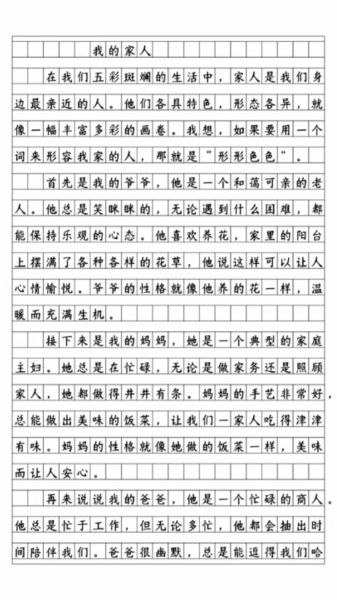 我的家人
在我们五彩斑斓的生活中，家人是我们身
边最亲近的人。他们各具特色，形态各异，就
像一幅丰富多彩的画卷。我想，如果要用一个
词来形容我家的人，那就是“形形色色”。
首先是我的爷爷，他是一个和蔼可亲的老
人。他总是笑眯眯的，无论遇到什么困难，都
能保持乐观的心态。他喜欢养花，家里的阳台
上摆满了各种各样的花草，他说这样可以让人
心情愉悦。爷爷的性格就像他养的花一样，温
暖而充满生机。
接下来是我的妈妈，她是一个典型的家庭
主妇。她总是在忙碌，无论是做家务还是照顾
家人，她都做得井井有条。妈妈的手艺非常好，
总能做出美味的饭菜，让我们一家人吃得津津
有味。妈妈的性格就像她做的饭菜一样，美味
而让人安心。
再来说说我的爸爸，他是一个忙碌的商人。
他总是忙于工作，但无论多忙，他都会抽出时
间陪伴我们。爸爸很幽默，总是能逗得我们哈